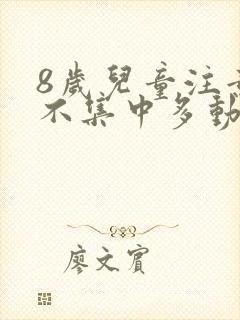 8歲兒童注
不集中多動
廖文賓